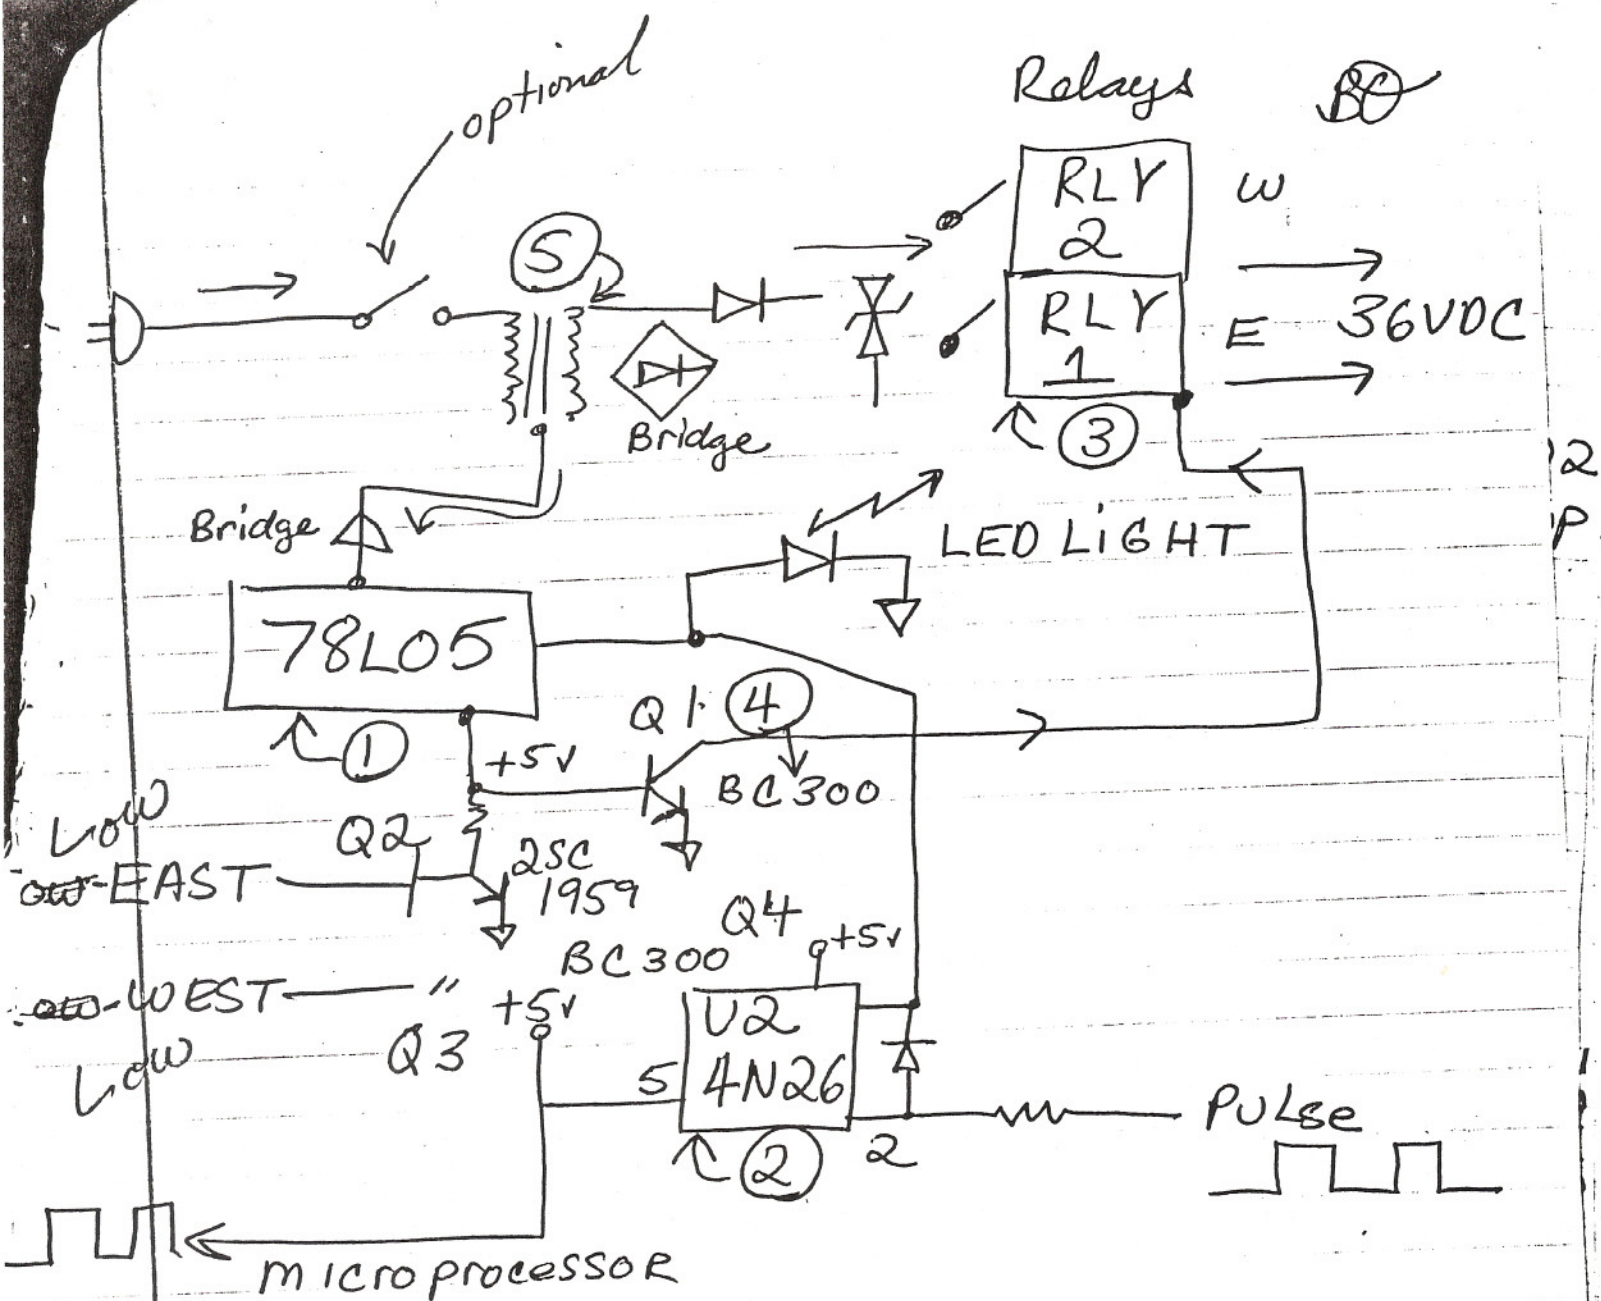 optional
Relays
RLY
2
W
5
RLY
1
E 36VDC
Bridge
3
Bridge
2
P
LED LiGHT
78L05
Q1 4
1
+5v
BC300
Low
Q2
EAST
2SC
1959
Q4
+5v
BC300
WEST — "
+5v
Low
Q3
U2
5
4N26
PULse
2
2
microprocessoR